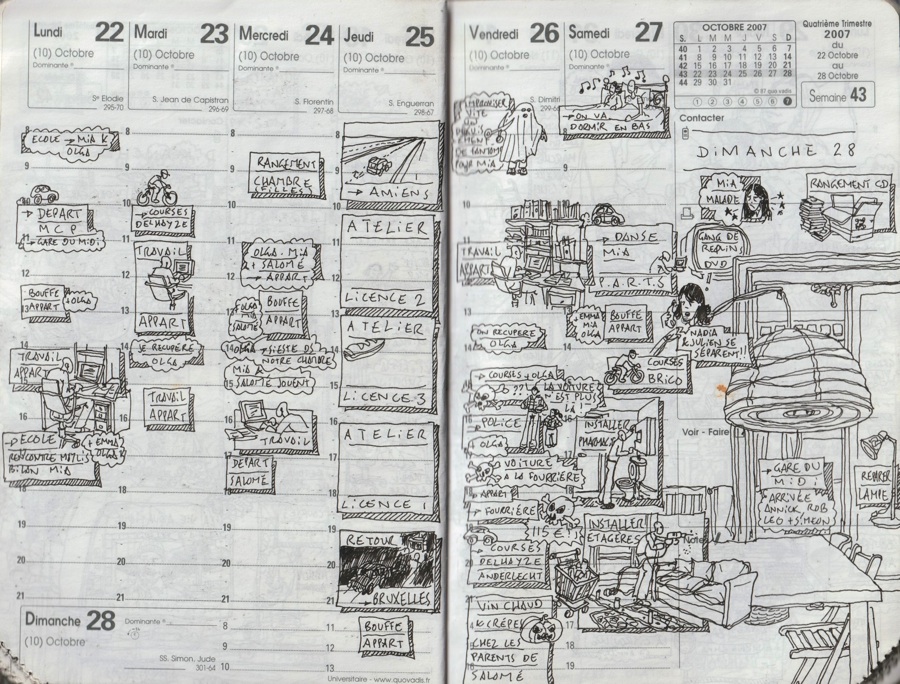 Lundi 22
(10) Octobre
Dominante
Ste Elodie
295-70
ECOLE → MIA K
OLGA
→ DEPART
M C P
→ GARE DU MIDI
BOUFFE
APPART
+ OLGA
TRAVAIL
APPART
→ ECOLE
RENCONTRE
BILAN MIA
+ EMMA
OLGA K
Dimanche 28
(10) Octobre
Dominante
SS. Simon, Jude
301-64
Mardi 23
(10) Octobre
Dominante
S. Jean de Capistran
296-69
→ COURSES
DELHAYZE
TRAVAIL
APPART
JE RECUPÉRE
OLGA
TRAVAIL
APPART
Mercredi 24
(10) Octobre
Dominante
S. Florentin
297-68
RANGEMENT
CHAMBRE
FILLES
OLGA - MIA
+ SALOMÉ
→ APPART
OLGA
MIA
SALOMÉ
BOUFFE
APPART
OLGA → SIESTE DS
NOTRE CHAMBRE
MIA &
SALOMÉ JOUENT
TRAVAIL
DEPART
SALOMÉ
Jeudi 25
(10) Octobre
Dominante
S. Enguerran
298-67
→ AMIENS
ATELIER
LICENCE 2
ATELIER
LICENCE 3
ATELIER
LICENCE 1
RETOUR
→ BRUXELLES
BOUFFE
APPART
Universitaire - www.quovadis.fr
Vendredi 26
(10) Octobre
Dominante
S. Dimitri
299-66
IMPROVISER
VITE
UN
DEGUIS
EMENT
DE FANTOM
POUR MIA
TRAVAIL
APPART
ON RECUPERE
OLGA
→ COURSES + OLGA
?? LA VOITURE
N'EST PLUS
LÀ !
→ POLICE
+ OLGA
→ VOITURE
A LA FOURRIÈRE
→ APPART
→ FOURRIÈRE
115 €!
→ COURSES
DELHAYZE
ANDERLECHT
VIN CHAUD
& CRÊPES
CHEZ LES
PARENTS DE
SALOMÉ
Samedi 27
(10) Octobre
Dominante
→ ON VA
DORMIR EN BAS
→ DANSE
MIA
P.A.R.T.S
+ EMMA
MIA
OLGA
BOUFFE
APPART
COURSES
BRICO
INSTALLER
PHARMACIE
INSTALLER
ETAGÈRES
OCTOBRE 2007
S. L M M J V S D
40 1 2 3 4 5 6 7
41 8 9 10 11 12 13 14
42 15 16 17 18 19 20 21
43 22 23 24 25 26 27 28
44 29 30 31
1 2 3 4 5 6 7
Quatrième Trimestre
2007
du
22 Octobre
au
28 Octobre
Semaine 43
Contacter
DIMANCHE 28
MIA
MALADE
RANGEMENT CD
GANG DE
REQUIN
DVD
NADIA
& JULIEN SE
SÉPARENT!!
Voir - Faire
→ GARE DU
MIDI
ARRIVÉE
ANNICK ROB
LEO + SIMEON
REPARER
LAMPE